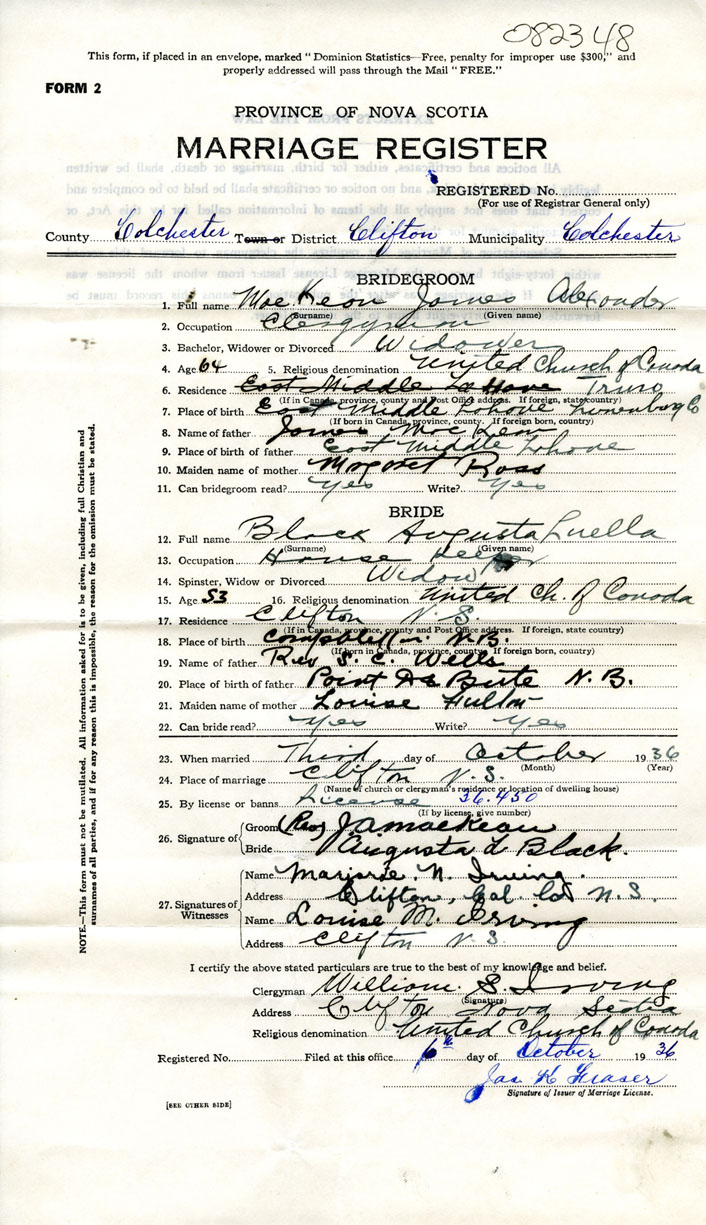 082348
This form, if placed in an envelope, marked "Dominion Statistics—Free, penalty for improper use $300," and
properly addressed will pass through the Mail "FREE."
FORM 2
PROVINCE OF NOVA SCOTIA
MARRIAGE REGISTER
REGISTERED No.
(For use of Registrar General only)
County Colchester Town or District Clifton Municipality Colchester
BRIDEGROOM
1. Full name MacKeen James Alexander
(Surname) (Given name)
2. Occupation Clergyman
3. Bachelor, Widower or Divorced Widower
4. Age 64 5. Religious denomination United Church of Canada
6. Residence East Middle La Have Truro
(If in Canada, province, county and Post Office address. If foreign, state country)
7. Place of birth East Middle Lahave Lunenburg Co
(If born in Canada, province, county. If foreign born, country)
8. Name of father James MacKean
9. Place of birth of father East Middle Lahave
10. Maiden name of mother Margaret Ross
11. Can bridegroom read? Yes Write? Yes
BRIDE
12. Full name Black Augusta Luella
(Surname) (Given name)
13. Occupation House Keeper
14. Spinster, Widow or Divorced Widow
15. Age 53 16. Religious denomination United Ch. of Canada
17. Residence Clifton N.S.
(If in Canada, province, county and Post Office address. If foreign, state country)
18. Place of birth Campbellton N.B.
(If born in Canada, province, county. If foreign born, country)
19. Name of father Rev S. C. Wells
20. Place of birth of father Point De Bute N.B.
21. Maiden name of mother Louise Fulton
22. Can bride read? Yes Write? Yes
23. When married Third day of October 1936
(Month) (Year)
24. Place of marriage Clifton N.S.
(Name of church or clergyman's residence or location of dwelling house)
25. By license or banns License 36.450
(If by license, give number)
26. Signature of Groom (Rev) J A MacKean
Bride Augusta L Black.
27. Signatures of Witnesses Name Marjorie N. Irving.
Address Clifton, Col. Co N.S.
Name Louise M. Irving
Address Clifton N.S.
I certify the above stated particulars are true to the best of my knowledge and belief.
Clergyman William S. Irving
(Signature)
Address Clifton Nova Scotia
Religious denomination United Church of Canada
Registered No. Filed at this office 6th day of October 1936
Jas K Fraser
Signature of Issuer of Marriage License.
[SEE OTHER SIDE]
NOTE.—This form must not be mutilated. All information asked for is to be given, including full Christian and
surnames of all parties, and if for any reason this is impossible, the reason for the omission must be stated.